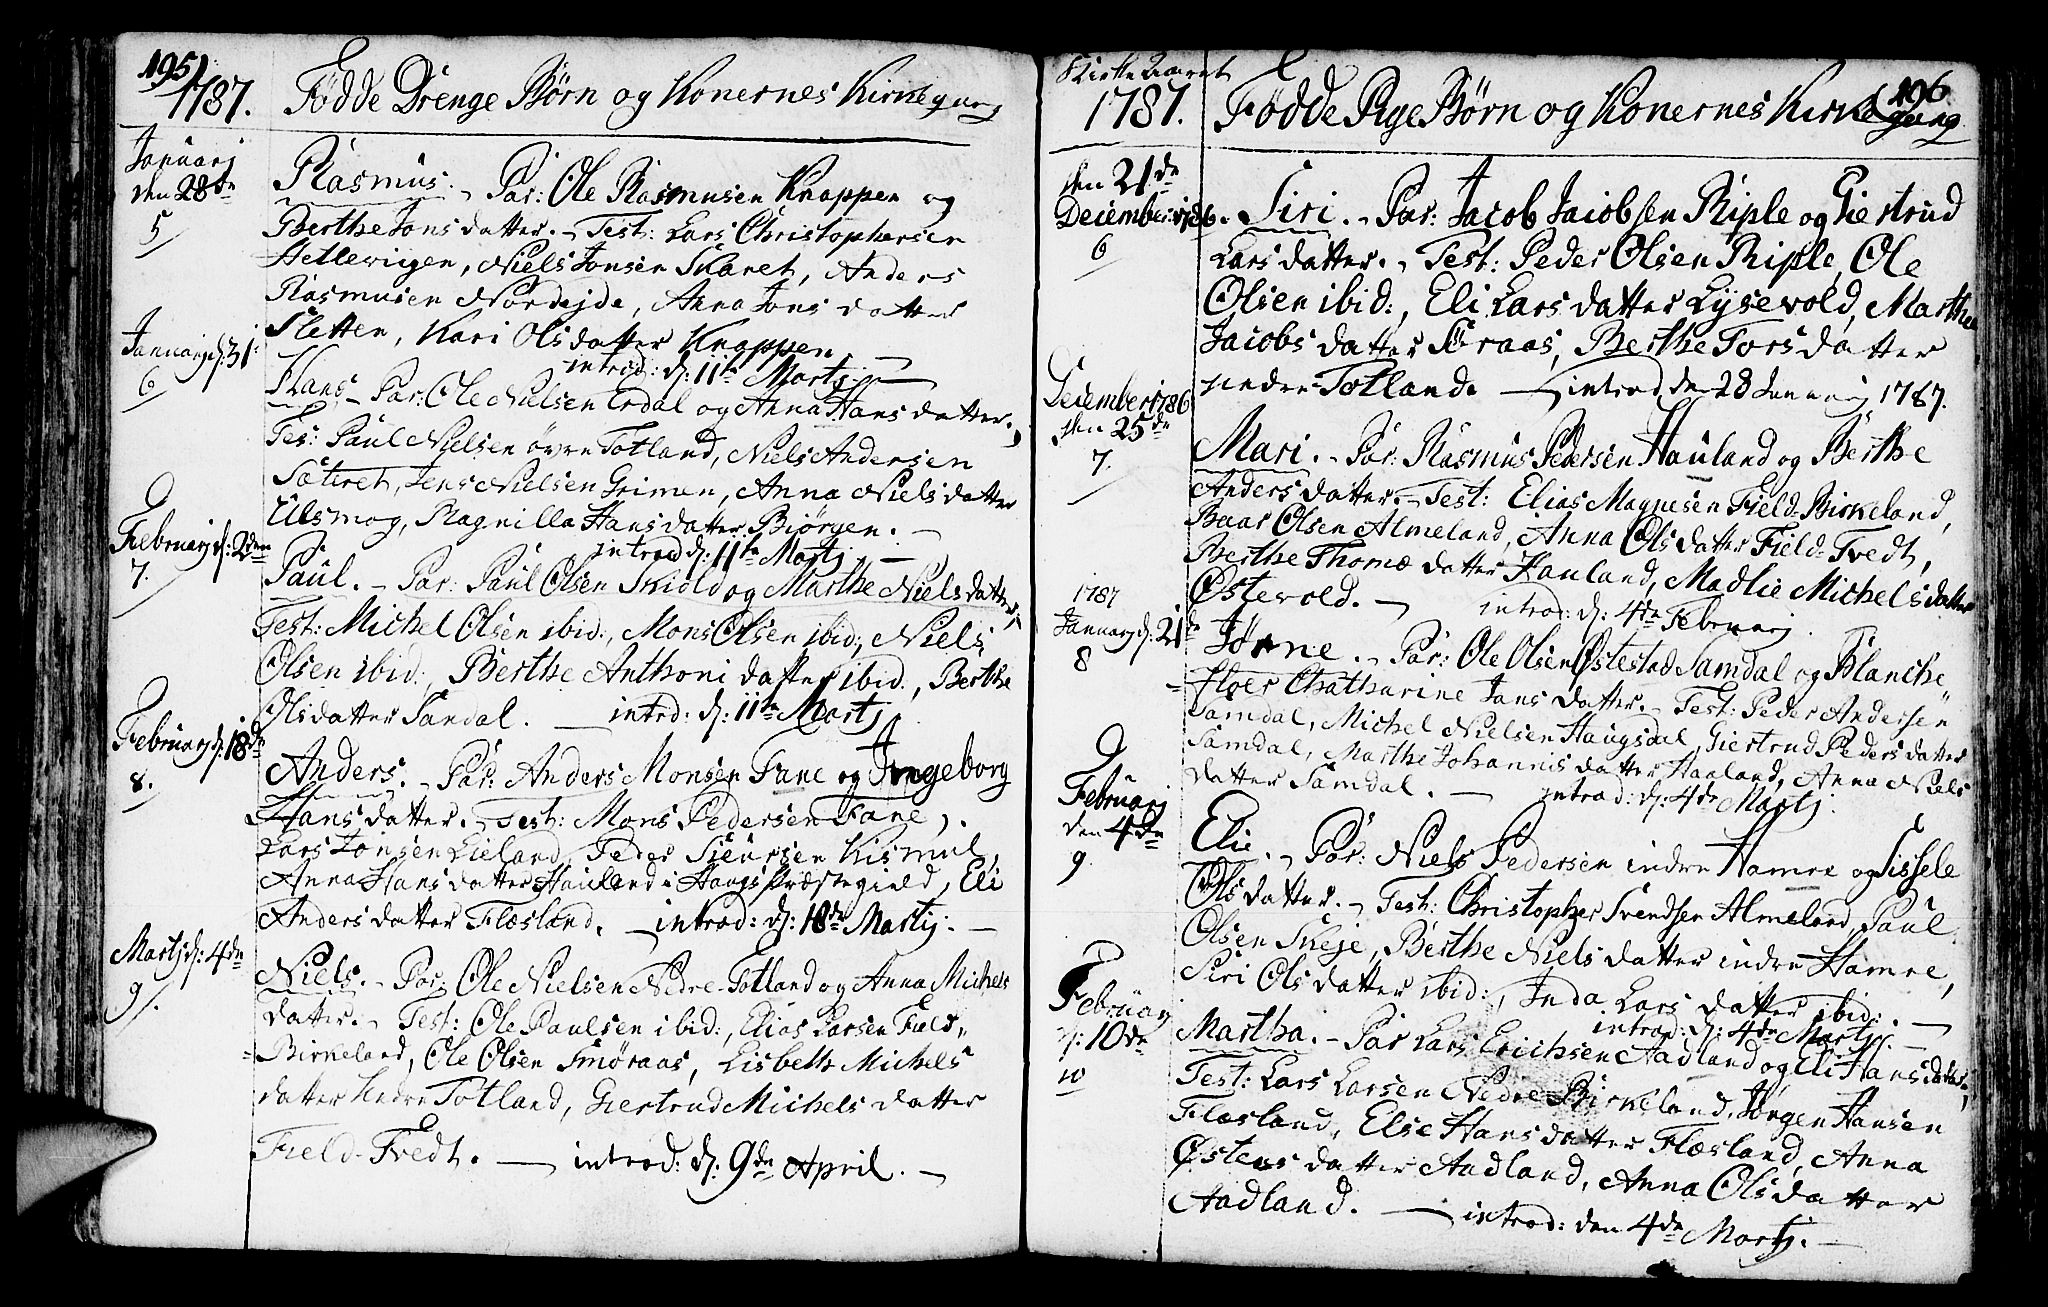 195
1787. Födde Drenge Börn og Konernes Kirkegang
Januarj
den 28de
5
Rasmus. - Par: Ole Rasmusen Knappen og
Berthe Jonsdatter. - Test: Lars Christophersen
Hetlevigen, Niels Jonsen Skaret, Anders
Rasmusen Nordejde, Anna Jons datter
Sletten, Kari Olsdatter Knappen.
introd: d: 11te Martj
Januarj d: 31
6
Hans - Par: Ole Nielsen Erdal og Anna Hans datter.
Tes: Paul Nielsen övre Totland, Niels Andersen
Sætret, Jens Nielsen Grimen, Anna Niels datter
Ulsmog, Ragnilla Hans datter Biörgen. -
introd d: 11te Martj -
Februarj d: 2den
7.
Paul. - Par: Paul Olsen Skiold og Marthe Niels datter,
Test: Michel Olsen ibid:, Mons Olsen ibid:, Niels
Olsen ibid:, Berthe Anthoni datter ibid:, Berthe
Olsdatter Sandal. - introd: d: 11te Martj
Februarj d: 18de
8.
Anders. - Par: Anders Monsen Fane og Ingeborg
Hans datter. - Test: Mons Pedersen Fane,
Lars Jonsen Lieland, Peder Siursen Kismul,
Anna Hans datter Hauland i Haugs Præstegield, Eli
Anders datter Flæsland. - introd: d: 18de Martij. -
Martj d: 4de
9.
Niels. - Par: Ole Nielsen Nedre-Totland og Anna Michels
datter. - Test: Ole Paulsen ibid:, Elias Larsen Field-
Birkeland, Ole Olsen Smöraas, Lisbeth Michels
datter Nedre Totland, Giertrud Michels datter
Field-Tvedt. - introd: d: 9de April. -
Kirke Aaret 196.
1787. Födde Pige Börn og Konernes Kirkegang
den 21de
December 1786.
6
Siri. - Par: Jacob Jacobsen Riple og Giertrud
Lars datter. - Test: Peder Olsen Riple, Ole
Olsen ibid:, Eli Lars datter Lysevold, Marthe
Jacobs datter Straas, Berthe Tors datter
nedre-Totland. - introd den 28 Januarj 1787.
December 1786
den 25de
7.
Mari. - Par: Rasmus Pedersen Hauland og Berthe
Anders datter. - Test: Elias Magnesen Field-Birkeland,
Baar Olsen Almeland, Anna Ols datter Field-Tvedt,
Berthe Thomæ datter Hauland, Madlie Michelsdatter
Östevold. - introd: d: 4de Februarj.
1787
Januarj d: 21de
8
Jörne. - Par: Ole Olsen Östestad Samdal og Blanche
Floer Chatharine Jans datter. - Test: Peder Andersen
Samdal, Michel Nielsen Haugsdal, Giertrud Peders datter
Samdal, Marthe Johannis datter Haaland, Anna Niels
datter Samdal. - introd: d: 4de Martj.
Februarj
den 4de
9
Elie. - Par: Niels Pedersen indre Hamre og Sissele
Ols datter. - Test: Christopher Svendsen Almeland, Paul
Olsen Skeje, Berthe Niels datter indre Hamre,
Siri Ols datter ibid:, Inda Lars datter ibid:. -
introd: d: 4de Martj. -
Februarj
d: 10de
10
Martha. - Par Lars Erichsen Aadland og Eli Hansdatter,
Test: Lars Larsen Nedre Birkeland, Jörgen Hansen
Flæsland, Else Hans datter Flæsland, Anna
Östens datter Aadland, Anna Olsdatter
Aadland. - introd: den 4de Martj. -